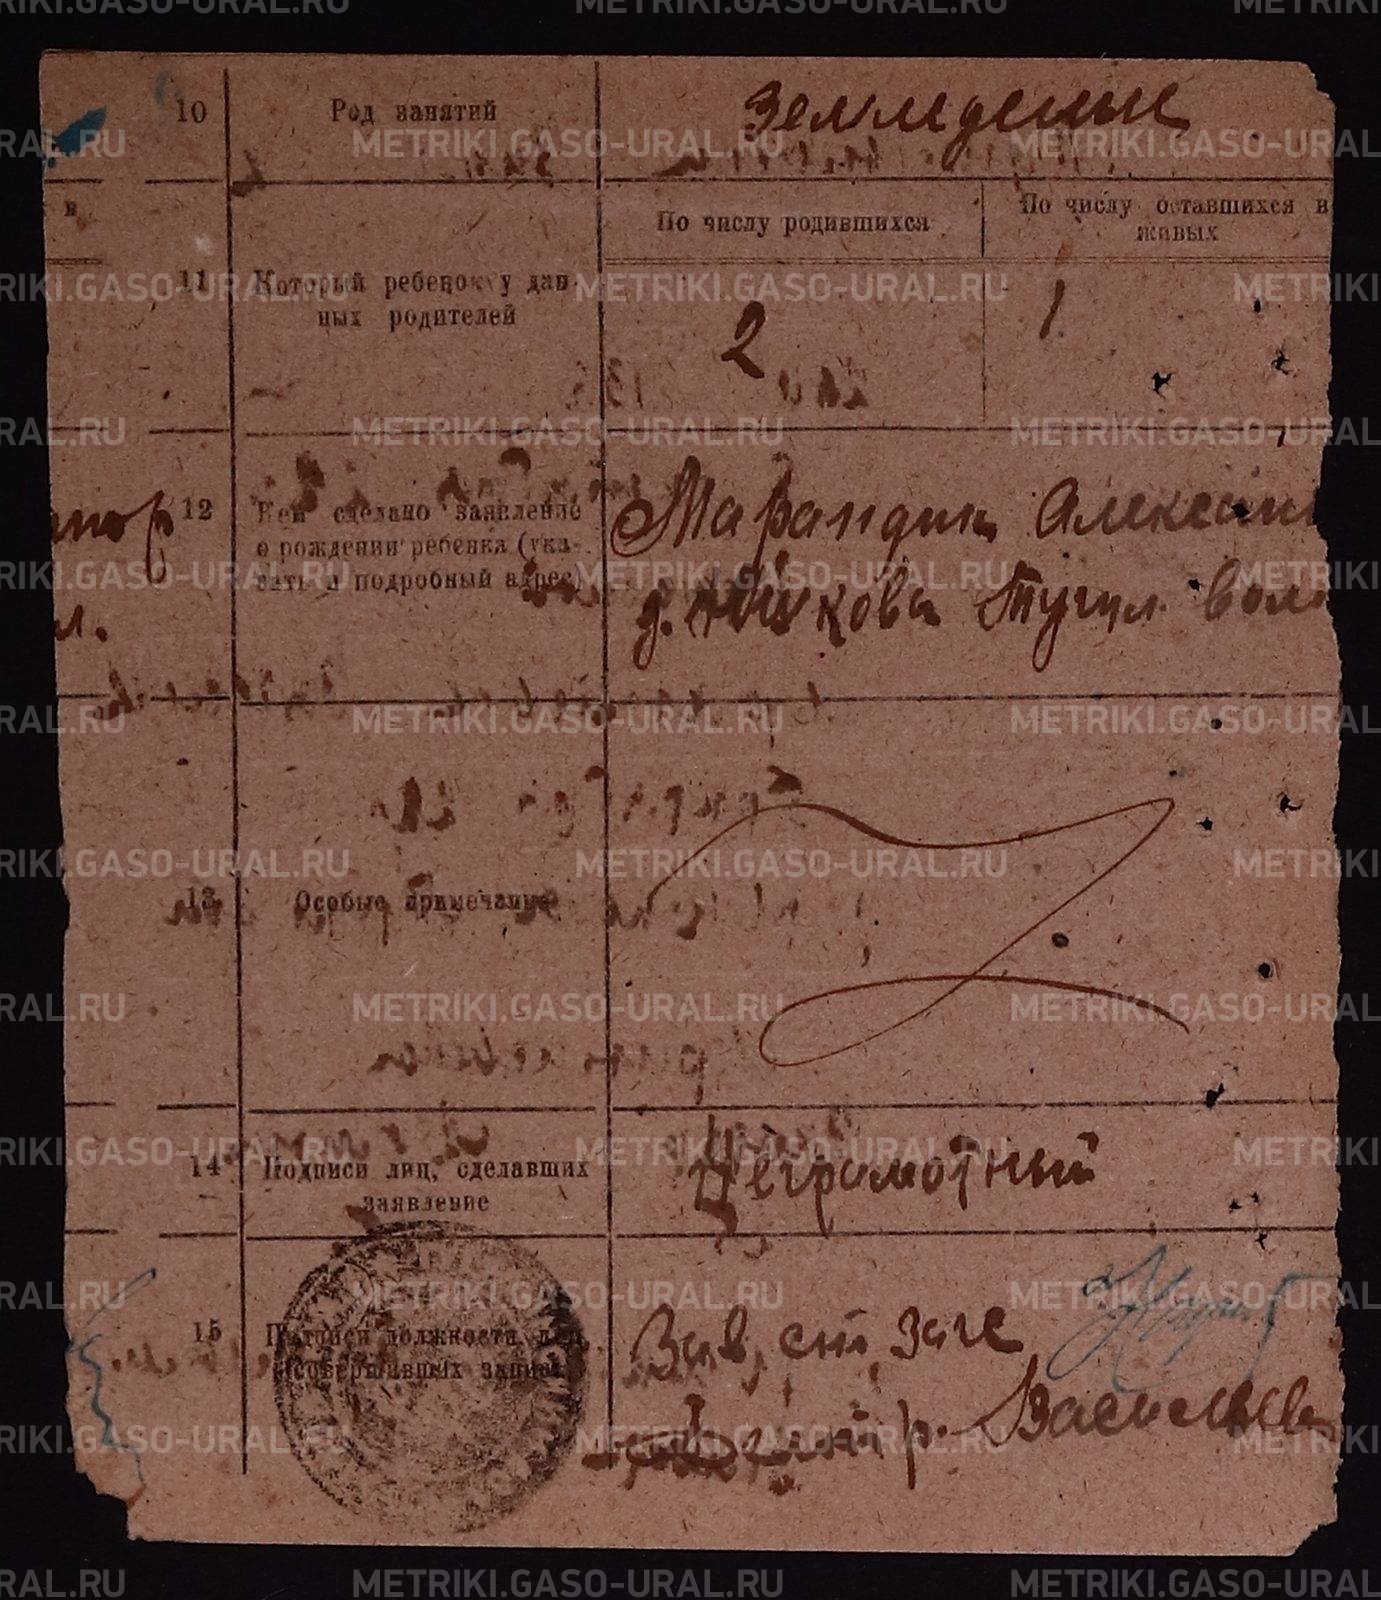 10 Род занятий Земледелие
в
По числу родившихся
По числу оставшихся в живых
11 Который ребенок у данных родителей
2 1
12 Кем сделано заявление о рождении ребенка (указать и подробный адрес)
Марандин Алексан
д. Тугул. вол.
л.
13 Особые примечания
14 Подписи лиц, сделавших заявление
Неграмотный
15 совершавших запись
Зав, ст, загс
Васильев
METRIKI.GASO-URAL.RU